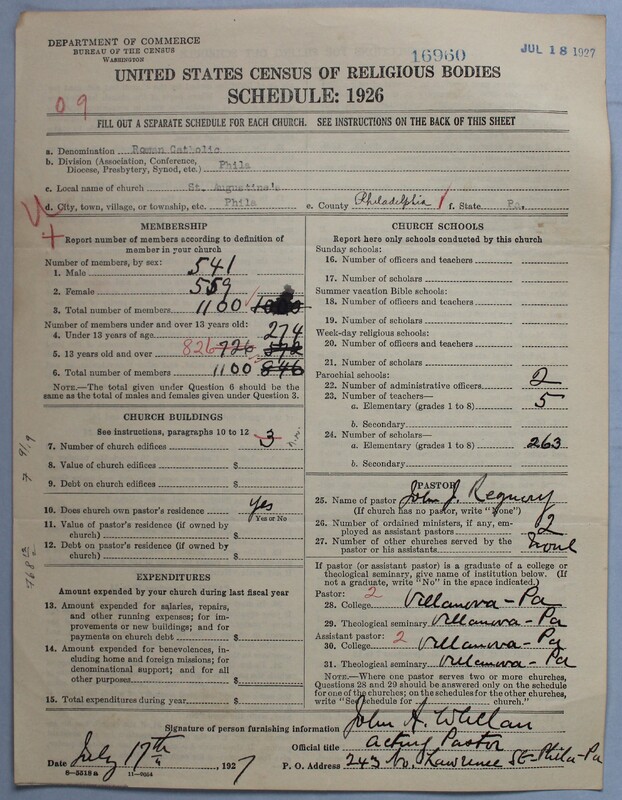 DEPARTMENT OF COMMERCE
BUREAU OF THE CENSUS
WASHINGTON
16960
JUL 18 1927
UNITED STATES CENSUS OF RELIGIOUS BODIES
SCHEDULE: 1926
09
FILL OUT A SEPARATE SCHEDULE FOR EACH CHURCH. SEE INSTRUCTIONS ON THE BACK OF THIS SHEET
a. Denomination Roman Catholic
b. Division (Association, Conference, Diocese, Presbytery, Synod, etc.) Phila
c. Local name of church St. Augustine's
d. City, town, village, or township, etc. Phila e. County Philadelphia f. State Pa.
MEMBERSHIP
Report number of members according to definition of
member in your church
Number of members, by sex:
1. Male 541
2. Female 559
3. Total number of members 1100
Number of members under and over 13 years old:
4. Under 13 years of age 274
5. 13 years old and over 826 726
6. Total number of members 1100 846
NOTE.—The total given under Question 6 should be the
same as the total of males and females given under Question 3.
CHURCH BUILDINGS
See instructions, paragraphs 10 to 12
7. Number of church edifices 3
8. Value of church edifices $
9. Debt on church edifices $
10. Does church own pastor's residence yes
Yes or No
11. Value of pastor's residence (if owned by
church) $
12. Debt on pastor's residence (if owned by
church) $
EXPENDITURES
Amount expended by your church during last fiscal year
13. Amount expended for salaries, repairs,
and other running expenses; for im-
provements or new buildings; and for
payments on church debt $
14. Amount expended for benevolences, in-
cluding home and foreign missions; for
denominational support; and for all
other purposes $
15. Total expenditures during year $
CHURCH SCHOOLS
Report here only schools conducted by this church
Sunday schools:
16. Number of officers and teachers
17. Number of scholars
Summer vacation Bible schools:
18. Number of officers and teachers
19. Number of scholars
Week-day religious schools:
20. Number of officers and teachers
21. Number of scholars
Parochial schools:
22. Number of administrative officers 2
23. Number of teachers—
a. Elementary (grades 1 to 8) 5
b. Secondary
24. Number of scholars—
a. Elementary (grades 1 to 8) 263
b. Secondary
PASTOR
25. Name of pastor John J. Regnery
(If church has no pastor, write "None")
26. Number of ordained ministers, if any, em-
ployed as assistant pastors 2
27. Number of other churches served by the
pastor or his assistants None
If pastor (or assistant pastor) is a graduate of a college or
theological seminary, give name of institution below. (If
not a graduate, write "No" in the space indicated.)
Pastor: 2
28. College Villanova - Pa
29. Theological seminary Villanova - Pa
Assistant pastor: 2
30. College Villanova - Pa
31. Theological seminary Villanova - Pa
NOTE.—Where one pastor serves two or more churches,
Questions 28 and 29 should be answered only on the schedule
for one of the churches; on the schedules for the other churches,
write "See schedule for church."
Signature of person furnishing information John A. Whelan
Official title acting Pastor
Date July 17th, 1927 P. O. Address 243 No. Lawrence St- Phila-Pa
8—5318a 11—9054